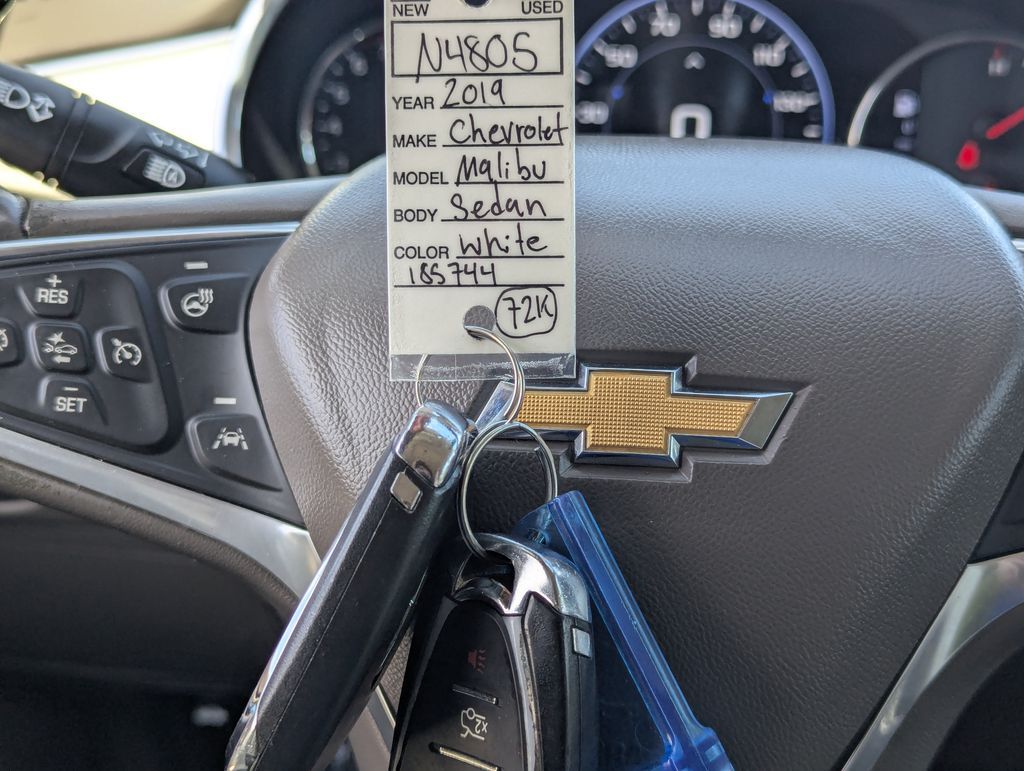 NEW USED
N4805
YEAR 2019
MAKE Chevrolet
MODEL Malibu
BODY Sedan
COLOR White
185744
72K
70
90
50
110
30
0
+
RES
SET
A
x2